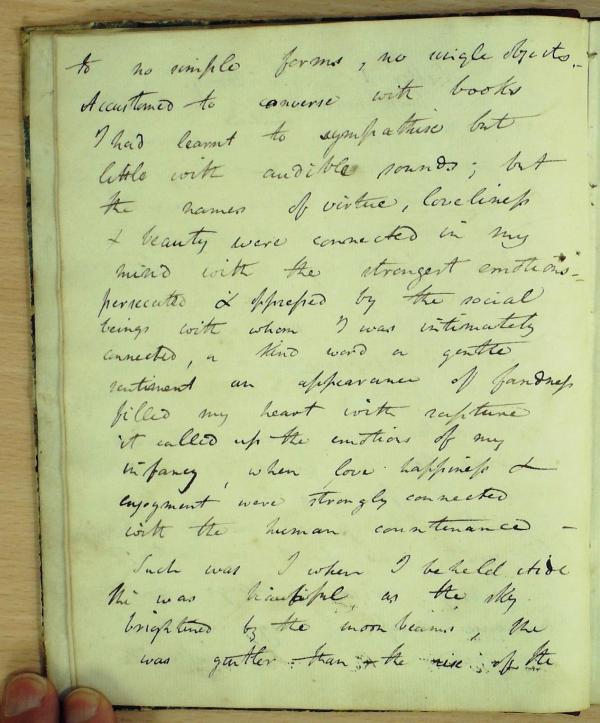 to no simple forms, no single objects.
Accustomed to converse with books
I had learnt to sympathise but
little with audible sounds; but
the names of virtue, loveliness
& beauty were connected in my
mind with the strongest emotions -
persecuted & oppressed by the social
beings with whom I was intimately
connected, a kind word or gentle
sentiment an appearance of fondness
filled my heart with rapture
it called up the emotions of my
infancy, when love happiness &
enjoyment were strongly connected
with the human countenance -
Such was I when I beheld
She was beautiful, as the sky
brightened by the moon beams, she
was gentler than the rise of the